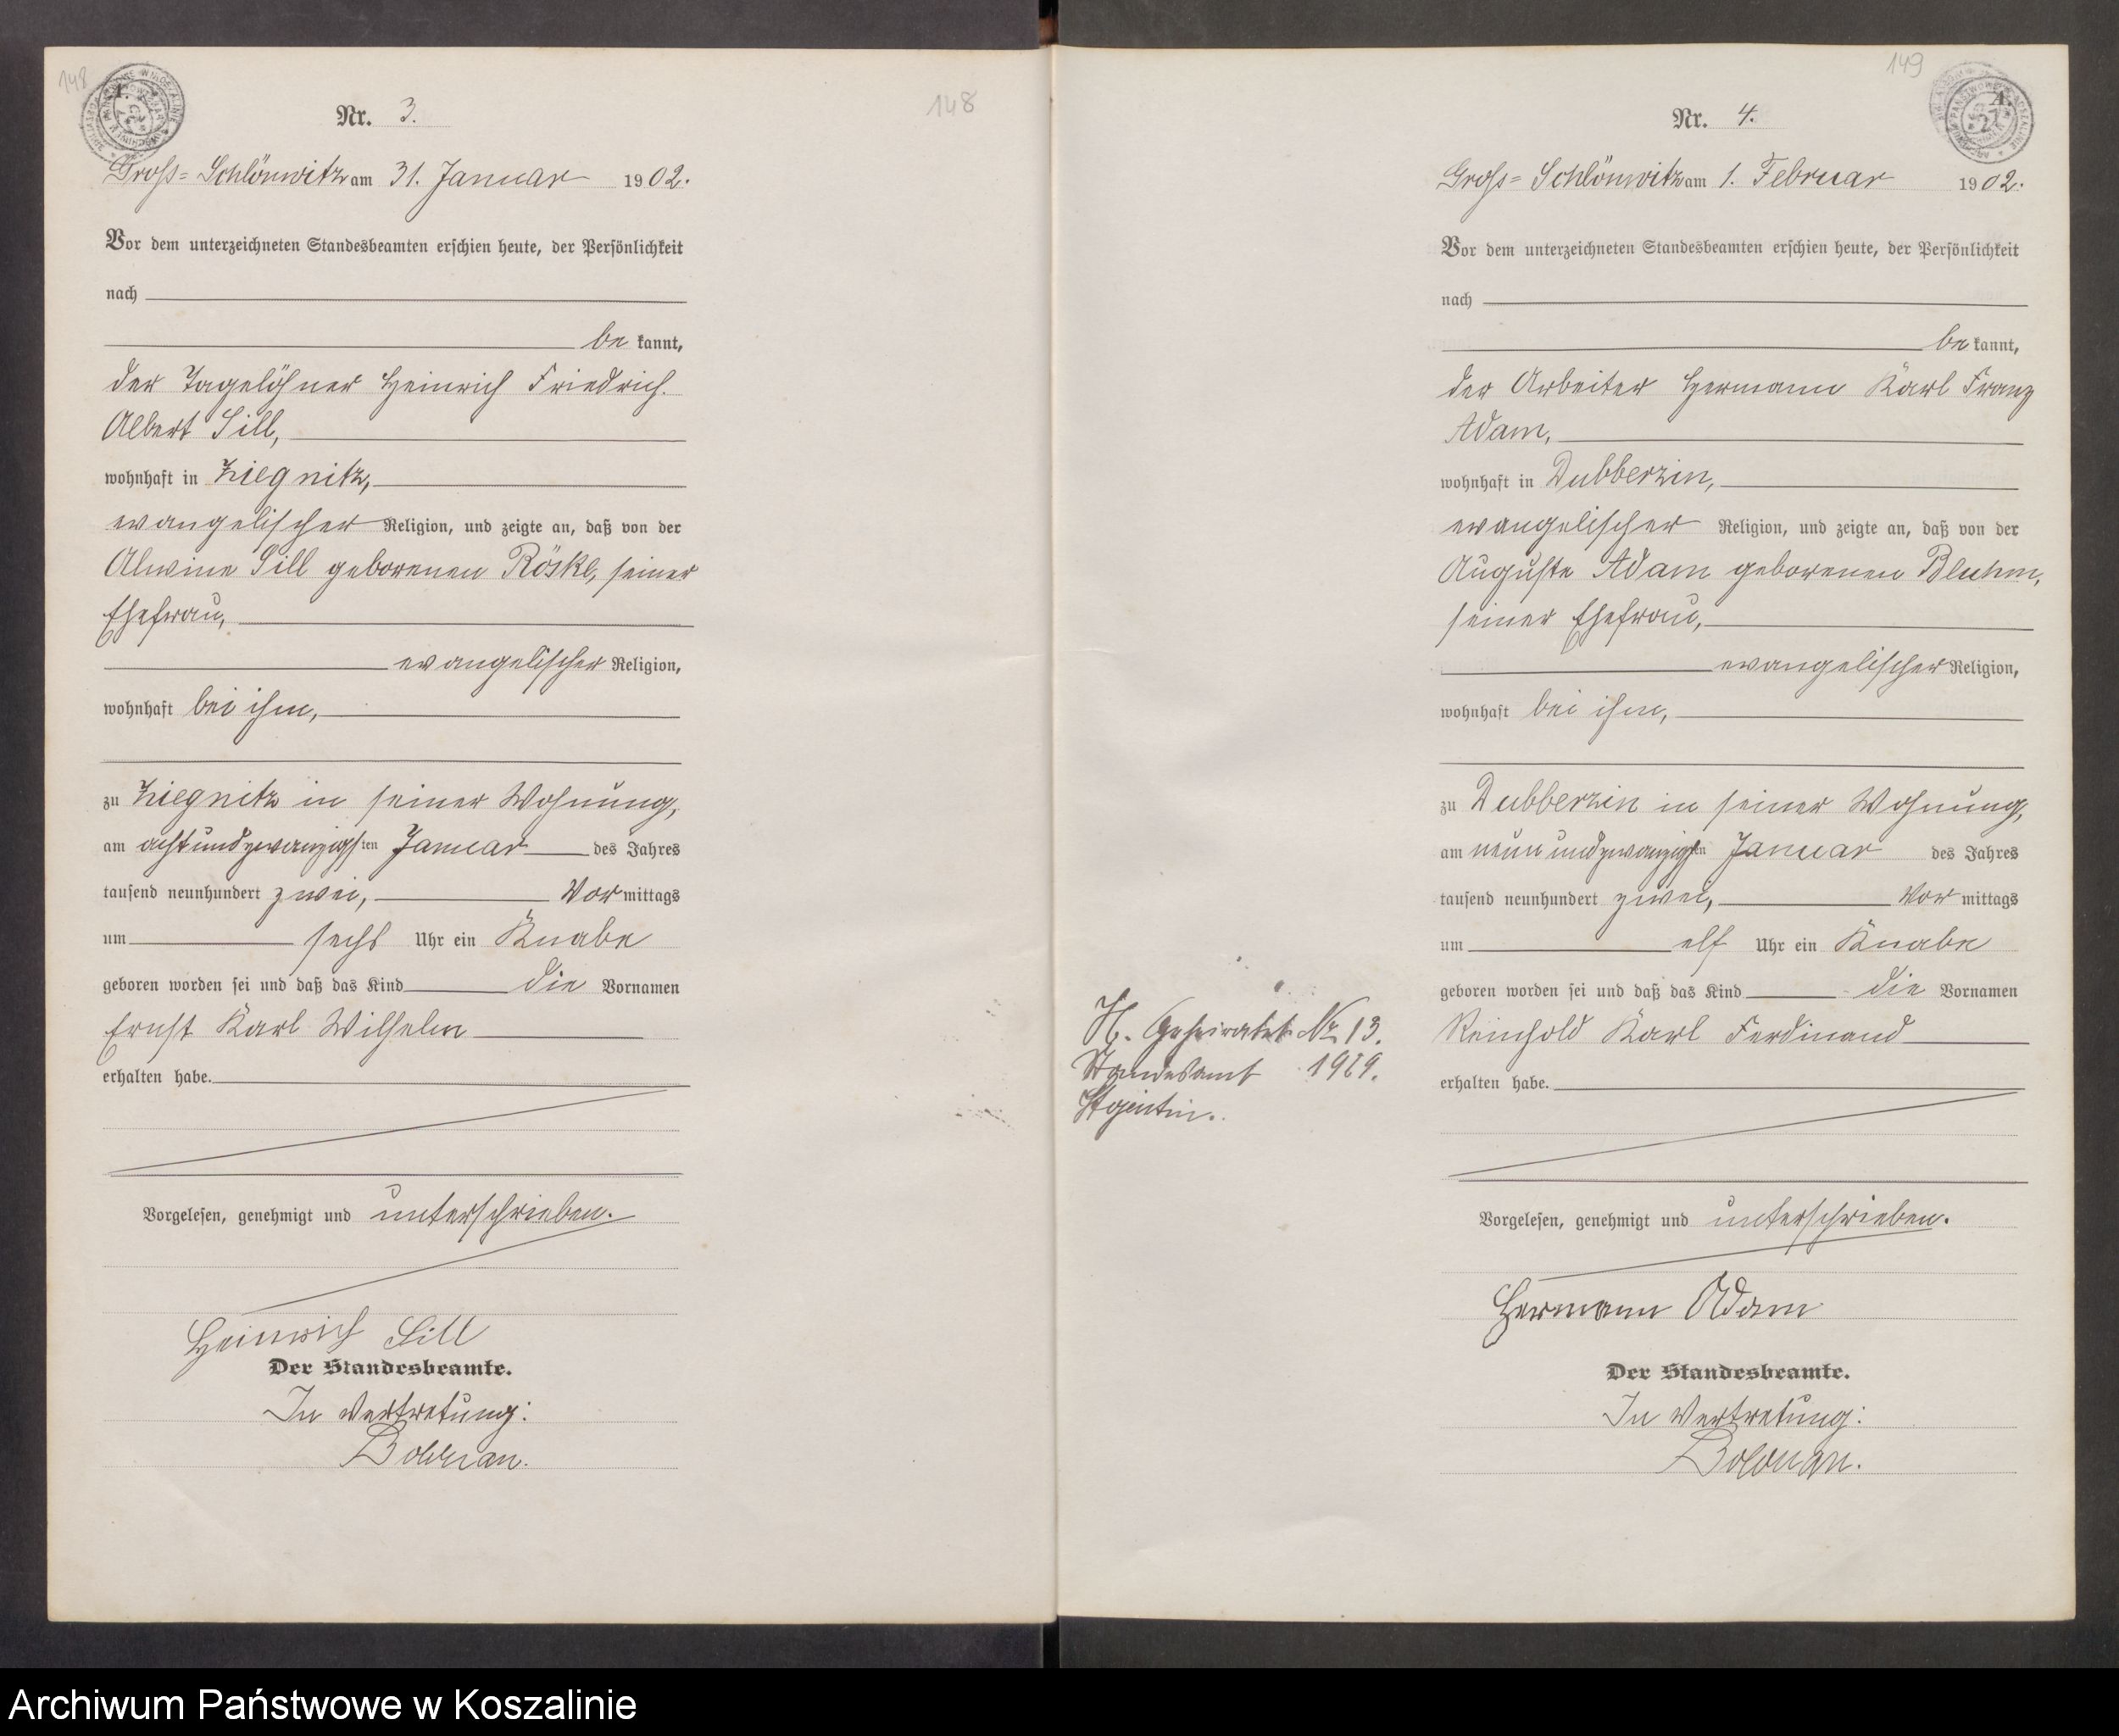 148
A.
Nr. 3.
148
Gross-Schlönwitz am 31. Januar 1902.
Vor dem unterzeichneten Standesbeamten erschien heute, der Persönlichkeit
nach
be kannt,
der Tagelöhner Heinrich Friedrich
Albert Sill,
wohnhaft in Ziegnitz,
evangelischer Religion, und zeigte an, daß von der
Alwine Sill geborenen Röske, seiner
Ehefrau,
evangelischer Religion,
wohnhaft bei ihm,
zu Ziegnitz in seiner Wohnung,
am achtundzwanzigsten Januar des Jahres
tausend neunhundert zwei, Vor mittags
um sechs Uhr ein Knabe
geboren worden sei und daß das Kind die Vornamen
Ernst Karl Wilhelm
erhalten habe.
Vorgelesen, genehmigt und unterschrieben.
Heinrich Sill
Der Standesbeamte.
In Vertretung:
149
A.
Nr. 4.
Gross-Schlönwitz am 1. Februar 1902.
Vor dem unterzeichneten Standesbeamten erschien heute, der Persönlichkeit
nach
be kannt,
der Arbeiter Hermann Karl Franz
Adam,
wohnhaft in Dubberzin,
evangelischer Religion, und zeigte an, daß von der
Auguste Adam geborenen Bluhm,
seiner Ehefrau,
evangelischer Religion,
wohnhaft bei ihm,
zu Dubberzin in seiner Wohnung,
am neunundzwanzigsten Januar des Jahres
tausend neunhundert zwei, Vor mittags
um elf Uhr ein Knabe
geboren worden sei und daß das Kind die Vornamen
Reinhold Karl Ferdinand
erhalten habe.
Vorgelesen, genehmigt und unterschrieben.
Hermann Adam
Der Standesbeamte.
In Vertretung:
H. Geheiratet Nr. 13.
Standesamt 1929.
Stojentin.
Archiwum Państwowe w Koszalinie